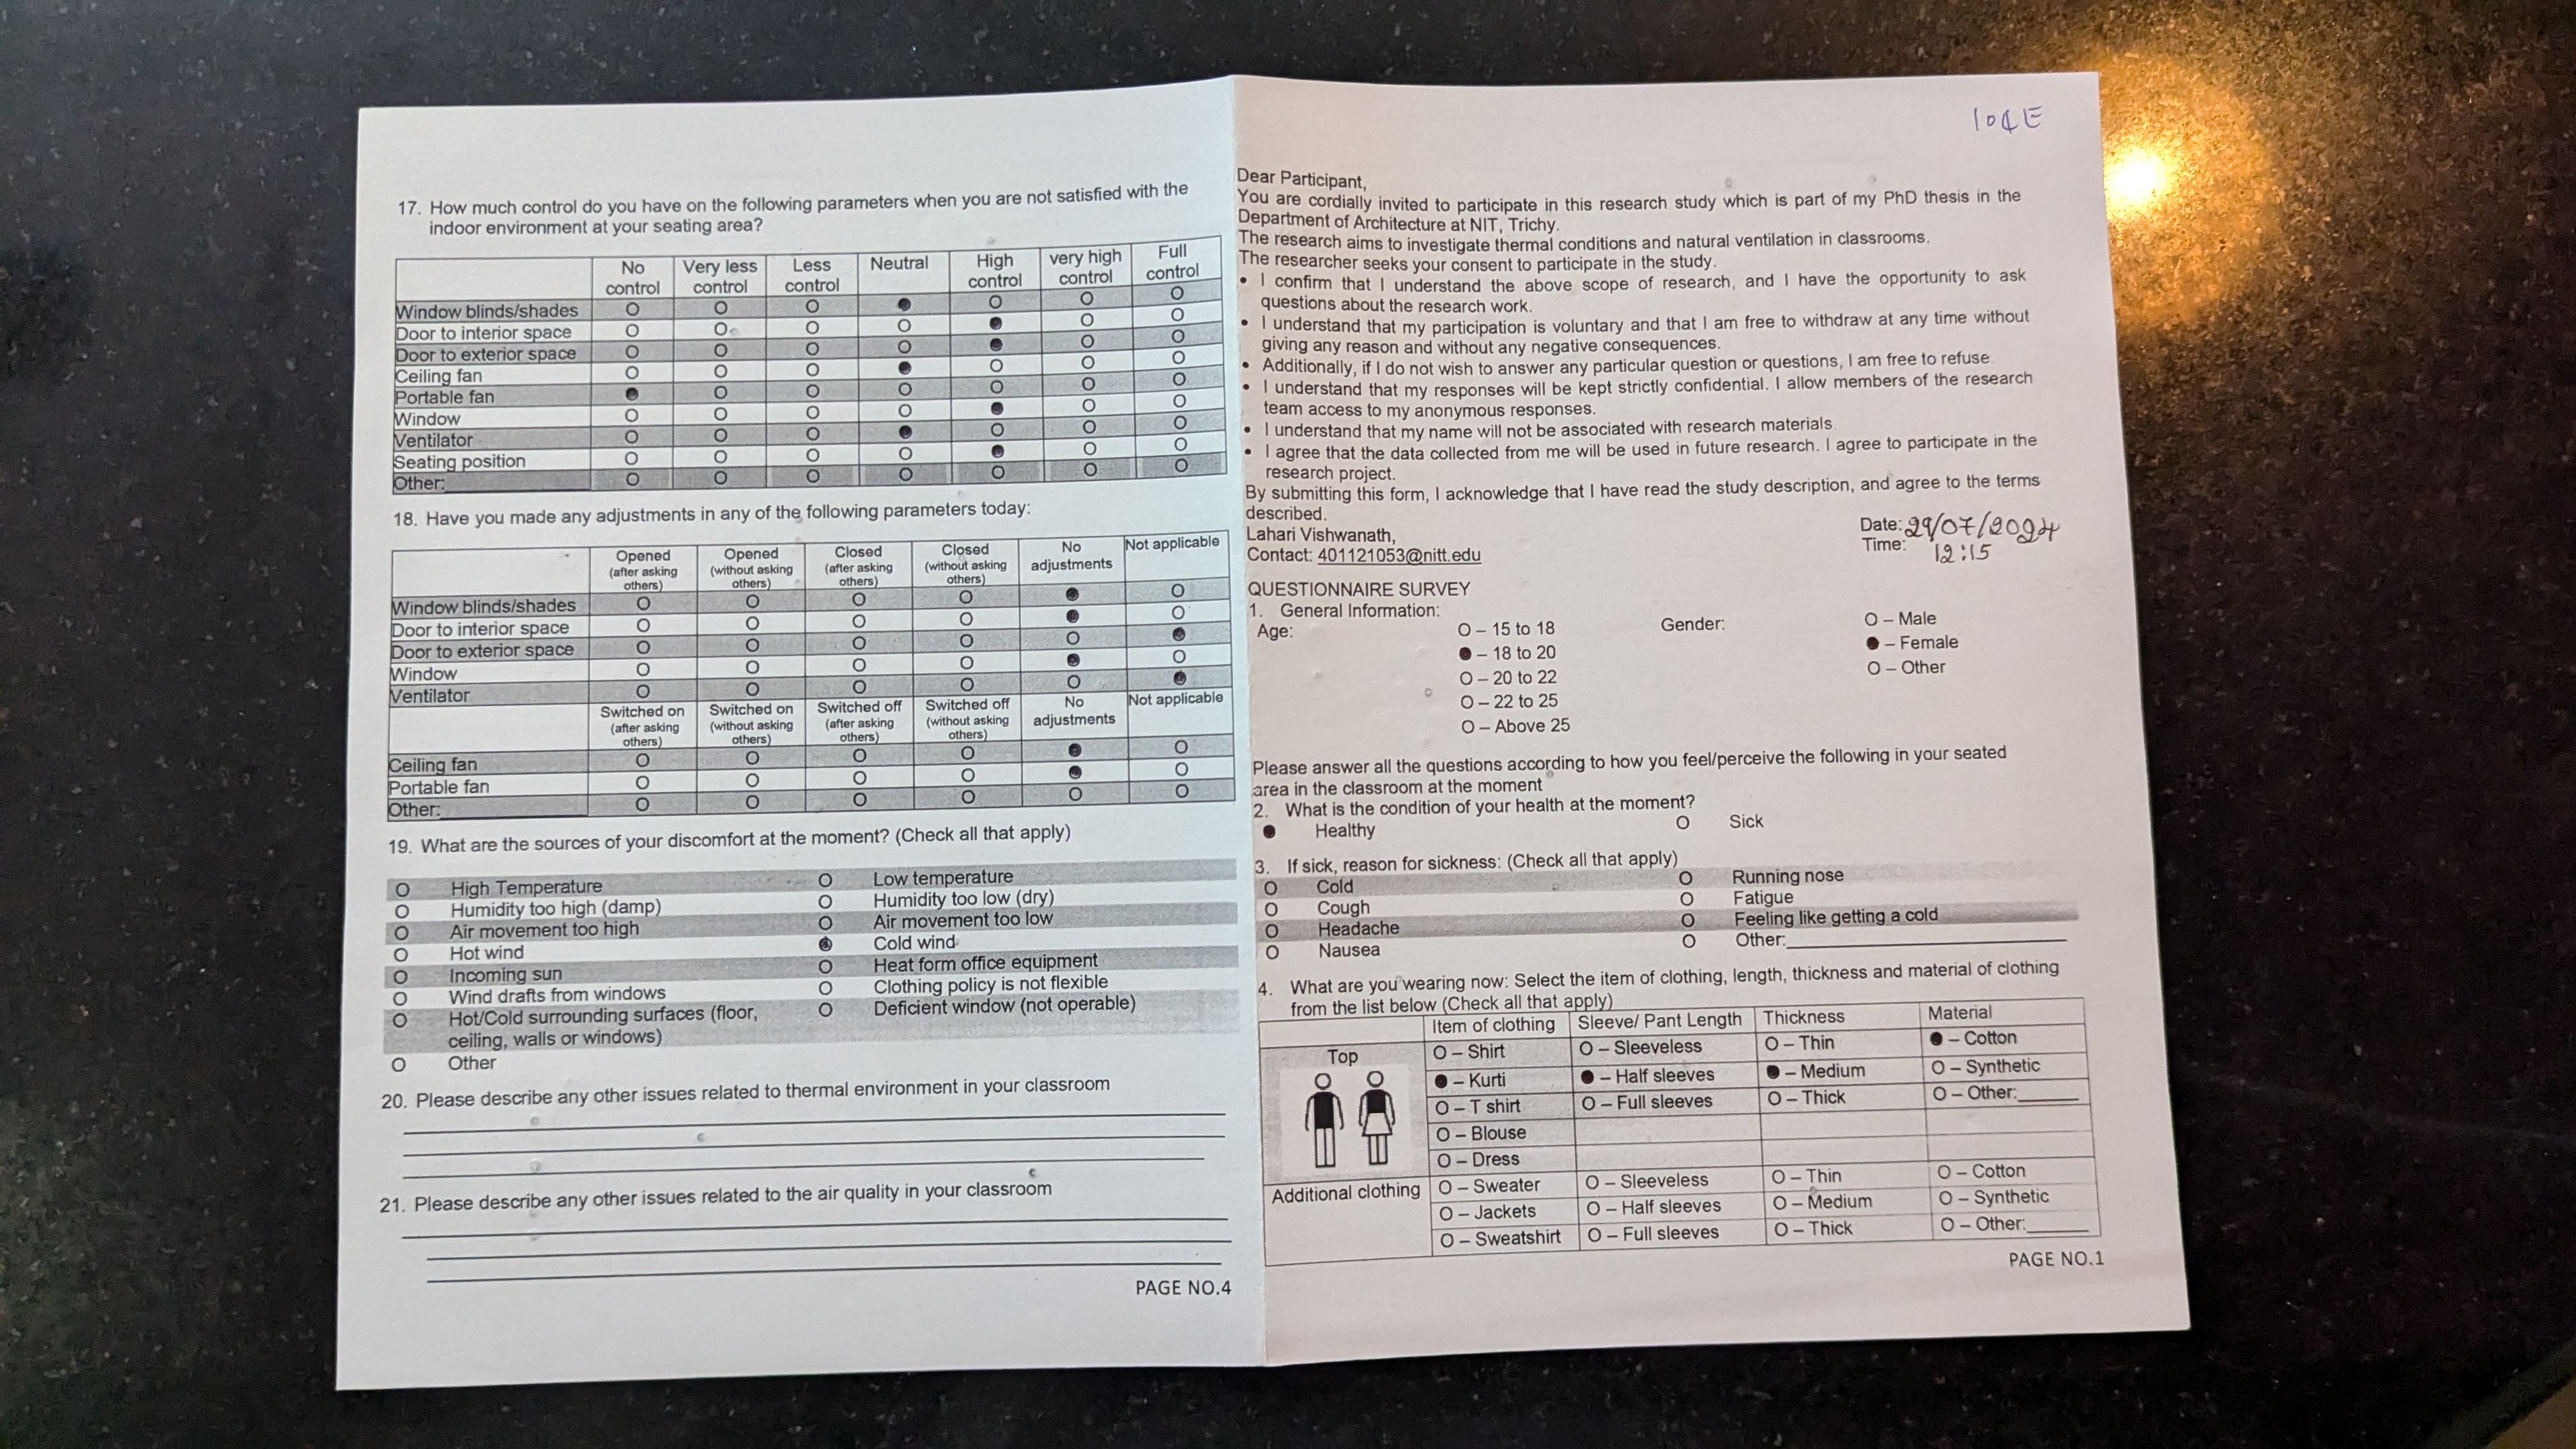 17. How much control do you have on the following parameters when you are not satisfied with the
indoor environment at your seating area?
No control Very less control Less control Neutral High control very high control Full control
Window blinds/shades O O O ● O O O
Door to interior space O O O O ● O O
Door to exterior space O O O O ● O O
Ceiling fan O O O ● O O O
Portable fan ● O O O O O O
Window O O O O ● O O
Ventilator O O O ● O O O
Seating position O O O O ● O O
Other:_______ O O O O O O O
18. Have you made any adjustments in any of the following parameters today:
Opened (after asking others) Opened (without asking others) Closed (after asking others) Closed (without asking others) No adjustments Not applicable
Window blinds/shades O O O O ● O
Door to interior space O O O O ● O
Door to exterior space O O O O O ●
Window O O O O ● O
Ventilator O O O O O ●
Switched on (after asking others) Switched on (without asking others) Switched off (after asking others) Switched off (without asking others) No adjustments Not applicable
Ceiling fan O O O O ● O
Portable fan O O O O ● O
Other:_______ O O O O O O
19. What are the sources of your discomfort at the moment? (Check all that apply)
O High Temperature O Low temperature
O Humidity too high (damp) O Humidity too low (dry)
O Air movement too high O Air movement too low
O Hot wind ● Cold wind
O Incoming sun O Heat form office equipment
O Wind drafts from windows O Clothing policy is not flexible
O Hot/Cold surrounding surfaces (floor, O Deficient window (not operable)
ceiling, walls or windows)
O Other
20. Please describe any other issues related to thermal environment in your classroom
21. Please describe any other issues related to the air quality in your classroom
PAGE NO.4
Dear Participant,
You are cordially invited to participate in this research study which is part of my PhD thesis in the
Department of Architecture at NIT, Trichy.
The research aims to investigate thermal conditions and natural ventilation in classrooms.
The researcher seeks your consent to participate in the study.
• I confirm that I understand the above scope of research, and I have the opportunity to ask
questions about the research work.
• I understand that my participation is voluntary and that I am free to withdraw at any time without
giving any reason and without any negative consequences.
• Additionally, if I do not wish to answer any particular question or questions, I am free to refuse
• I understand that my responses will be kept strictly confidential. I allow members of the research
team access to my anonymous responses.
• I understand that my name will not be associated with research materials
• I agree that the data collected from me will be used in future research. I agree to participate in the
research project.
By submitting this form, I acknowledge that I have read the study description, and agree to the terms
described.
Lahari Vishwanath,
Contact: 401121053@nitt.edu
Date: 29/07/2024
Time: 12:15
QUESTIONNAIRE SURVEY
1. General Information:
Age: O – 15 to 18 Gender: O – Male
● – 18 to 20 ● – Female
O – 20 to 22 O – Other
O – 22 to 25
O – Above 25
Please answer all the questions according to how you feel/perceive the following in your seated
area in the classroom at the moment
2. What is the condition of your health at the moment?
● Healthy O Sick
3. If sick, reason for sickness: (Check all that apply)
O Cold O Running nose
O Cough O Fatigue
O Headache O Feeling like getting a cold
O Nausea O Other:_______
4. What are you wearing now: Select the item of clothing, length, thickness and material of clothing
from the list below (Check all that apply)
Item of clothing Sleeve/ Pant Length Thickness Material
Top O – Shirt O – Sleeveless O – Thin ● – Cotton
● – Kurti ● – Half sleeves ● – Medium O – Synthetic
O – T shirt O – Full sleeves O – Thick O – Other:______
O – Blouse
O – Dress
Additional clothing O – Sweater O – Sleeveless O – Thin O – Cotton
O – Jackets O – Half sleeves O – Medium O – Synthetic
O – Sweatshirt O – Full sleeves O – Thick O – Other:______
PAGE NO.1